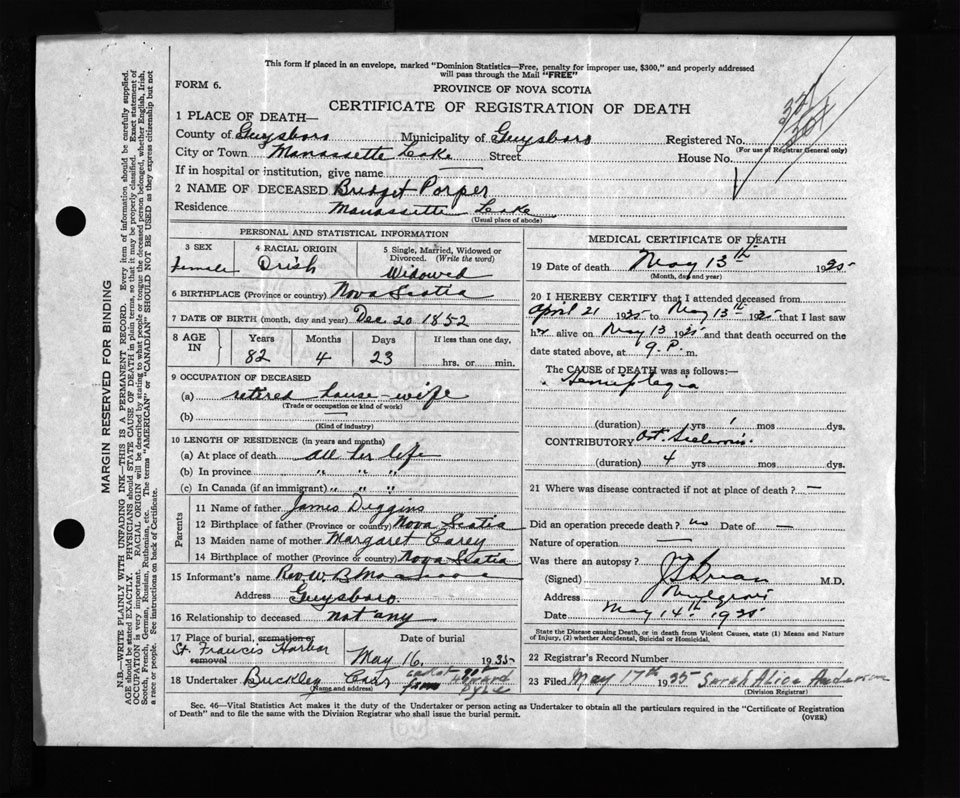 This form if placed in an envelope, marked "Dominion Statistics—Free, penalty for improper use, $300," and properly addressed
will pass through the Mail "FREE"
FORM 6.
PROVINCE OF NOVA SCOTIA
CERTIFICATE OF REGISTRATION OF DEATH
MARGIN RESERVED FOR BINDING
N.B.—WRITE PLAINLY WITH UNFADING INK—THIS IS A PERMANENT RECORD. Every item of information should be carefully supplied.
AGE should be stated EXACTLY. PHYSICIANS should STATE CAUSE OF DEATH in plain terms, so that it may be properly classified. Exact statement of
OCCUPATION is very important. RACIAL ORIGIN will be described by stating to what people or tongue the deceased person belonged, whether English, Irish,
Scotch, French, German, Russian, Ruthenian, etc. The terms "AMERICAN" or "CANADIAN" SHOULD NOT BE USED as they express citizenship but not
a race or people. See instructions on back of Certificate.
1 PLACE OF DEATH—
County of Guysboro Municipality of Guysboro Registered No.
(For use of Registrar General only)
City or Town Manassette Lake Street House No.
If in hospital or institution, give name
2 NAME OF DECEASED Bridget Porper
Residence Manassette Lake
(Usual place of abode)
PERSONAL AND STATISTICAL INFORMATION
3 SEX 4 RACIAL ORIGIN 5 Single, Married, Widowed or
Divorced. (Write the word)
female Irish Widowed
6 BIRTHPLACE (Province or country) Nova Scotia
7 DATE OF BIRTH (month, day and year) Dec 20 1852
8 AGE IN Years Months Days If less than one day,
82 4 23 hrs. or min.
9 OCCUPATION OF DECEASED
(a) retired house-wife
(Trade or occupation or kind of work)
(b)
(Kind of industry)
10 LENGTH OF RESIDENCE (in years and months)
(a) At place of death all her life
(b) In province " " "
(c) In Canada (if an immigrant) " " "
Parents
11 Name of father James Diggins
12 Birthplace of father (Province or country) Nova Scotia
13 Maiden name of mother Margaret Carey
14 Birthplace of mother (Province or country) Nova Scotia
15 Informant's name Rev. W. B.
Address Guysboro
16 Relationship to deceased not any
17 Place of burial, cremation or removal Date of burial
St. Francis Harbor May 16, 1935
18 Undertaker Buckley
(Name and address)
MEDICAL CERTIFICATE OF DEATH
19 Date of death May 13th 1935
(Month, day and year)
20 I HEREBY CERTIFY that I attended deceased from
April 21 1935 to May 13th 1935 that I last saw
her alive on May 13 1935 and that death occurred on the
date stated above, at 9. P. m.
The CAUSE of DEATH was as follows:—
Hemiplegia
(duration) yrs 1 mos dys.
CONTRIBUTORY
(duration) 4 yrs mos dys.
21 Where was disease contracted if not at place of death? —
Did an operation precede death? no Date of —
Nature of operation —
Was there an autopsy?
(Signed) M.D.
Address Mulgrave
Date May 14th 1935
State the Disease causing Death, or in death from Violent Causes, state (1) Means and Nature
of Injury, (2) whether Accidental, Suicidal or Homicidal.
22 Registrar's Record Number
23 Filed May 17th 1935 Sarah Alice Anderson
(Division Registrar)
Sec. 46—Vital Statistics Act makes it the duty of the Undertaker or person acting as Undertaker to obtain all the particulars required in the "Certificate of Registration
of Death" and to file the same with the Division Registrar who shall issue the burial permit.
(OVER)